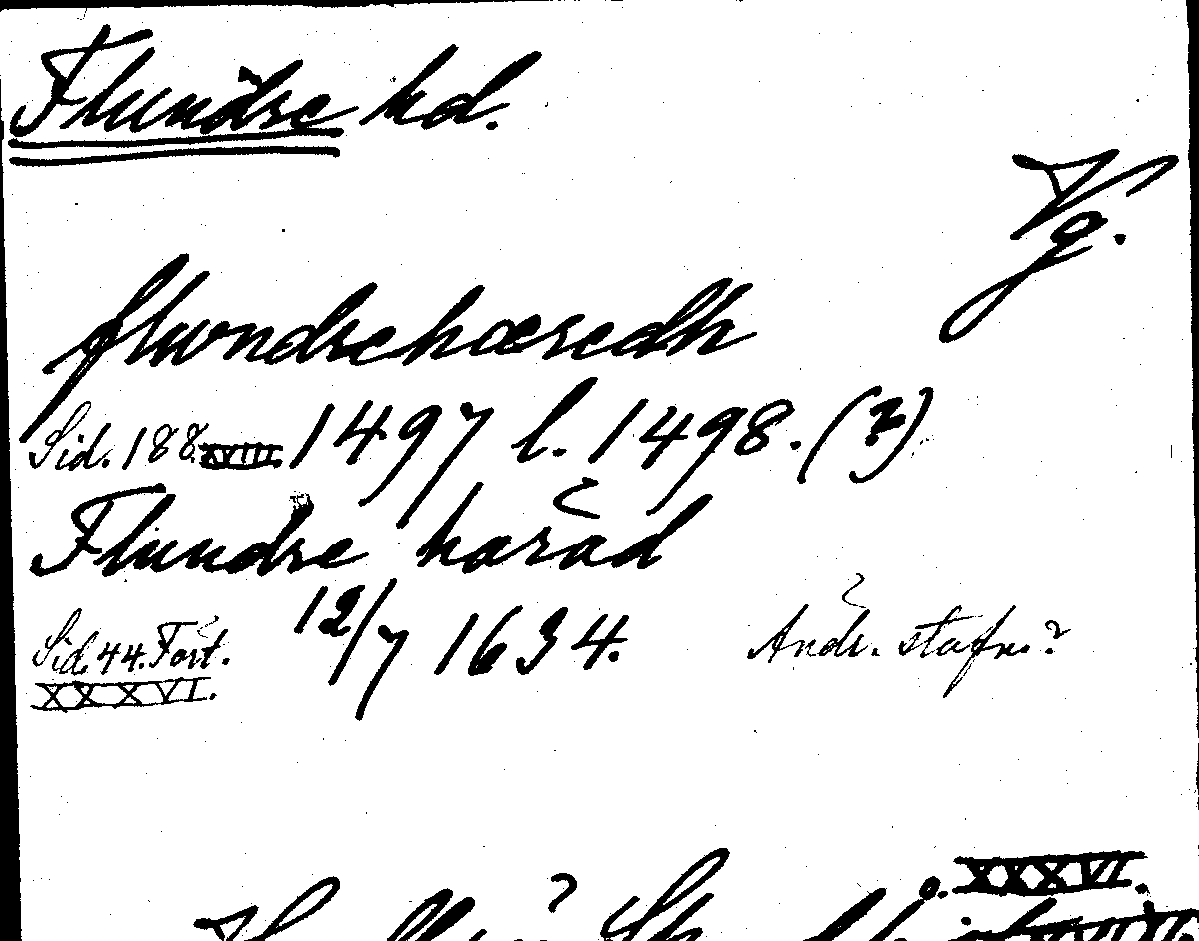 Flundre hd.
Vg.
flwndrehæredh
Sid. 188. XVIII. 1497 l. 1498. (?)
Flundre harad
Sid. 44. Fort. 12/7 1634. Andr. stafn.?
XXXVI.
o. XXXVI.